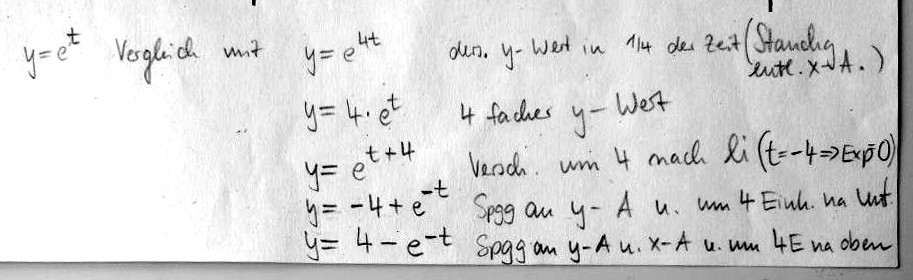 y=e^t Vergleich mit y=e^4t ders. y-Wert in 1/4 der Zeit (Stauchg
entl. x-A.)
y=4·e^t 4 facher y-Wert
y=e^t+4 Versch. um 4 nach li (t=-4=>Exp=0)
y=-4+e^-t Spgg an y-A u. um 4 Einh. na Unt.
y=4-e^-t Spgg an y-A u. x-A u. um 4E na oben